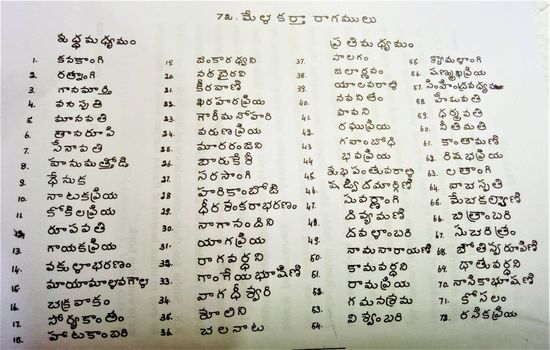 72. మేళ కర్తా రాగములు
శుద్ధమధ్యమం
1. కనకాంగి
2. రత్నాంగి
3. గానమూర్తి
4. వనస్పతి
5. మానవతి
6. తానరూపి
7. సేనాపతి
8. హనుమత్తోడి
9. ధేనుక
10. నాటకప్రియ
11. కోకిలప్రియ
12. రూపవతి
13. గాయకప్రియ
14. వకుళాభరణం
15. మాయామాళవగౌళ
16. చక్రవాకం
17. సూర్యకాంతం
18. హాటకాంబరి
19. ఝంకారధ్వని
20. నఠభైరవి
21. కీరవాణి
22. ఖరహరప్రియ
23. గౌరీమనోహరి
24. వరుణప్రియ
25. మారరంజని
26. చారుకేశి
27. సరసాంగి
28. హరికాంబోది
29. ధీరశంకరాభరణం
30. నాగానందిని
31. యాగప్రియ
32. రాగవర్ధని
33. గాంగేయభూషిణి
34. వాగధీశ్వరి
35. శూలిని
36. చలనాట
ప్రతిమధ్యమం
37. సాలగం
38. జలార్ణవం
39. ఝాలవరాళి
40. నవనీతం
41. పావని
42. రఘుప్రియ
43. గవాంబోధి
44. భవప్రియ
45. శుభపంతువరాళి
46. షడ్విదమార్గిణి
47. సువర్ణాంగి
48. దివ్యమణి
49. దవళాంబరి
50. నామనారాయణి
51. కామవర్ధని
52. రామప్రియ
53. గమనశ్రమ
54. విశ్వంబరి
55. శ్యామలాంగి
56. షణ్ముఖప్రియ
57. సింహేంద్రమధ్యమ
58. హేమవతి
59. ధర్మవతి
60. నీతిమతి
61. కాంతామణి
62. రిషభప్రియ
63. లతాంగి
64. వాచస్పతి
65. మేచకల్యాణి
66. చిత్రాంబరి
67. సుచరిత్రం
68. జ్యోతిస్వరూపిణి
69. ధాతువర్ధని
70. నాసికాభూషిణి
71. కోసలం
72. రసికప్రియ